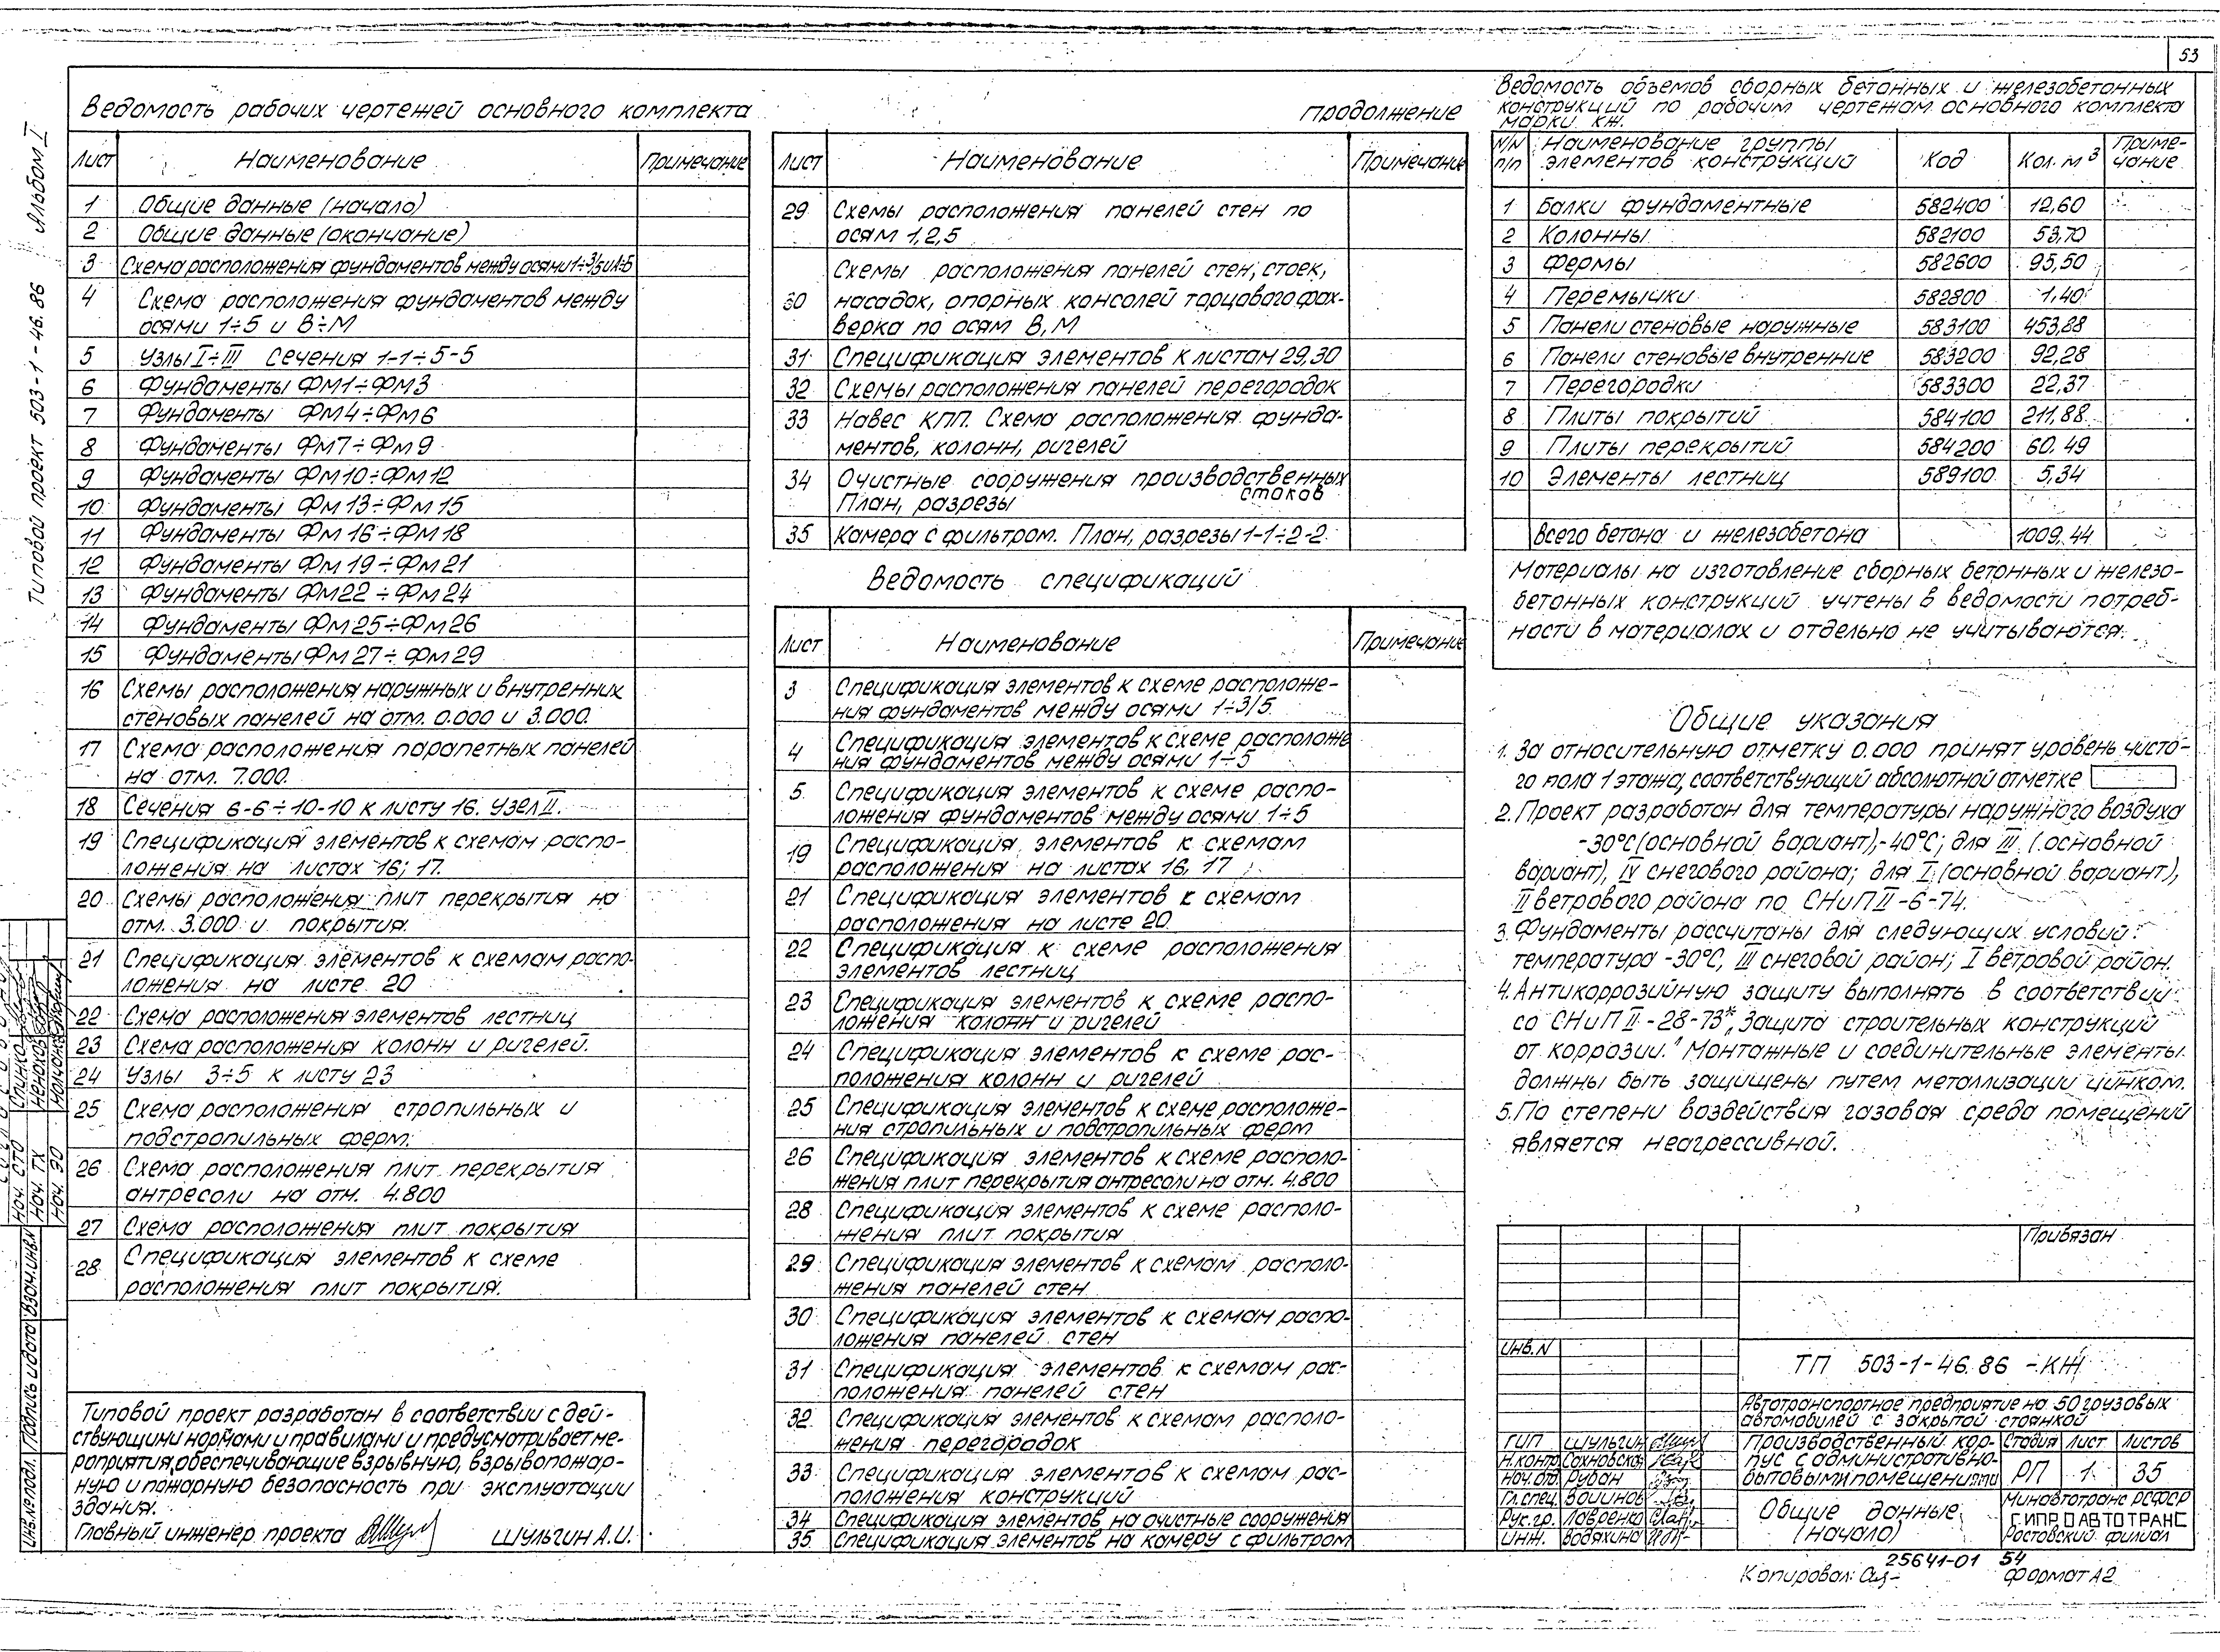 53
Типовой проект 503-1-46.86 Альбом I
Ведомость рабочих чертежей основного комплекта
Лист Наименование Примечание
1 Общие данные (начало)
2 Общие данные (окончание)
3 Схема расположения фундаментов между осями 1÷3/5 и А÷Б
4 Схема расположения фундаментов между
осями 1÷5 и В÷М
5 Узлы I÷III Сечения 1-1÷5-5
6 Фундаменты Фм1÷Фм3
7 Фундаменты Фм4÷Фм6
8 Фундаменты Фм7÷Фм9
9 Фундаменты Фм10÷Фм12
10 Фундаменты Фм13÷Фм15
11 Фундаменты Фм16÷Фм18
12 Фундаменты Фм19÷Фм21
13 Фундаменты Фм22÷Фм24
14 Фундаменты Фм25÷Фм26
15 Фундаменты Фм27÷Фм29
16 Схемы расположения наружных и внутренних
стеновых панелей на отм. 0.000 и 3.000.
17 Схема расположения парапетных панелей
на отм. 7.000.
18 Сечения 6-6÷10-10 к листу 16. Узел II.
19 Спецификация элементов к схемам распо-
ложения на листах 16; 17.
20 Схемы расположения плит перекрытия на
отм. 3.000 и покрытия.
21 Спецификация элементов к схемам распо-
ложения на листе 20
22 Схема расположения элементов лестниц
23 Схема расположения колонн и ригелей.
24 Узлы 3÷5 к листу 23
25 Схема расположения стропильных и
подстропильных ферм.
26 Схема расположения плит перекрытия
антресоли на отм. 4.800
27 Схема расположения плит покрытия
28 Спецификация элементов к схеме
расположения плит покрытия.
Типовой проект разработан в соответствии с дей-
ствующими нормами и правилами и предусматривает ме-
роприятия, обеспечивающие взрывную, взрывопожар-
ную и пожарную безопасность при эксплуатации
здания.
Главный инженер проекта Шульгин А.И.
продолжение
Лист Наименование Примечание
29 Схемы расположения панелей стен по
осям 1,2,5
Схемы расположения панелей стен, стоек,
30 насадок, опорных консолей торцового фах-
верка по осям В, М
31 Спецификация элементов к листам 29,30
32 Схемы расположения панелей перегородок
33 Навес КПП. Схема расположения фунда-
ментов, колонн, ригелей
34 Очистные сооружения производственных
стоков
План, разрезы
35 Камера с фильтром. План, разрезы 1-1÷2-2.
Ведомость спецификаций
Лист Наименование Примечание
3 Спецификация элементов к схеме расположе-
ния фундаментов между осями 1÷3/5
4 Спецификация элементов к схеме расположе
ния фундаментов между осями 1÷5
5 Спецификация элементов к схеме распо-
ложения фундаментов между осями 1÷5
19 Спецификация элементов к схемам
расположения на листах 16, 17
21 Спецификация элементов к схемам
расположения на листе 20
22 Спецификация к схеме расположения
элементов лестниц
23 Спецификация элементов к схеме распо-
ложения колонн и ригелей
24 Спецификация элементов к схеме рас-
положения колонн и ригелей
25 Спецификация элементов к схеме расположе-
ния стропильных и подстропильных ферм
26 Спецификация элементов к схеме располо-
жения плит перекрытия антресоли на отм. 4.800
28 Спецификация элементов к схеме располо-
жения плит покрытия
29 Спецификация элементов к схемам располо-
жения панелей стен
30 Спецификация элементов к схемам распо-
ложения панелей стен
31 Спецификация элементов к схемам рас-
положения панелей стен
32 Спецификация элементов к схемам располо-
жения перегородок
33 Спецификация элементов к схемам рас-
положения конструкций
34 Спецификация элементов на очистные сооружения
35 Спецификация элементов на камеру с фильтром
Ведомость объемов сборных бетонных и железобетонных
конструкций по рабочим чертежам основного комплекта
марки КЖ.
N/N п/п Наименование группы элементов конструкций Код Кол. м³ Приме-чание
1 Балки фундаментные 582400 12,60
2 Колонны 582100 53,70
3 Фермы 582600 95,50
4 Перемычки 582800 1,40
5 Панели стеновые наружные 583100 453,88
6 Панели стеновые внутренние 583200 92,28
7 Перегородки 583300 22,37
8 Плиты покрытий 584100 211,88
9 Плиты перекрытий 584200 60,49
10 Элементы лестниц 589100 5,34
Всего бетона и железобетона 1009,44
Материалы на изготовление сборных бетонных и железо-
бетонных конструкций учтены в ведомости потреб-
ности в материалах и отдельно не учитываются.
Общие указания
1. За относительную отметку 0.000 принят уровень чисто-
го пола 1 этажа, соответствующий абсолютной отметке
2. Проект разработан для температуры наружного воздуха
-30°С (основной вариант),-40°С; для III (основной
вариант), IV снегового района; для I (основной вариант),
II ветрового района по СНиП II-6-74.
3. Фундаменты рассчитаны для следующих условий:
температура -30°С, III снеговой район; I ветровой район.
4. Антикоррозийную защиту выполнять в соответствии
со СНиП II-28-73*, Защита строительных конструкций
от коррозии." Монтажные и соединительные элементы
должны быть защищены путем металлизации цинком.
5. По степени воздействия газовая среда помещений
является неагрессивной.
Привязан
Инв.N
ТП 503-1-46.86 -КЖ
Автотранспортное предприятие на 50 грузовых
автомобилей с закрытой стоянкой
ГИП Шульгин
Н.контр. Сахновская
Нач.отд. Рубан
Гл.спец. Воинов
Рук.гр. Лавренко
Инж. Водяхина
Производственный кор-
пус с административно-
бытовыми помещениями
Стадия Лист Листов
РП 1 35
Общие данные
(начало)
Минавтотранс РСФСР
ГИПРОАВТОТРАНС
Ростовский филиал
25641-01 54
Копировал:
Формат А2
Нач. СТО
Нач. ТХ
Нач. ЭО
Инв.№ подл. Подпись и дата Взам.инв.N